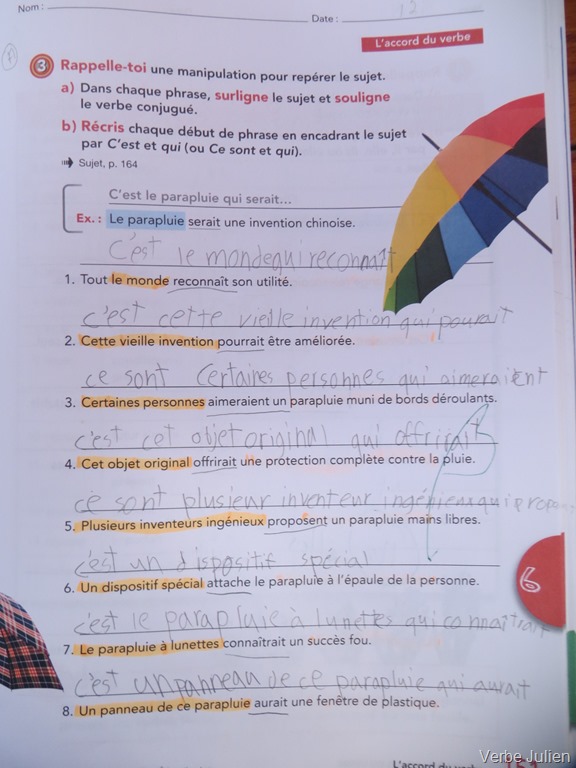 Nom :
Date :
L'accord du verbe
3 Rappelle-toi une manipulation pour repérer le sujet.
a) Dans chaque phrase, surligne le sujet et souligne
le verbe conjugué.
b) Récris chaque début de phrase en encadrant le sujet
par C'est et qui (ou Ce sont et qui).
Sujet, p. 164
C'est le parapluie qui serait...
Ex. : Le parapluie serait une invention chinoise.
C'est le monde qui reconnaît
1. Tout le monde reconnaît son utilité.
c'est cette vieille invention qui pourait
2. Cette vieille invention pourrait être améliorée.
ce sont certaines personnes qui aimeraient
3. Certaines personnes aimeraient un parapluie muni de bords déroulants.
c'est cet objet original qui offrirait
4. Cet objet original offrirait une protection complète contre la pluie.
ce sont plusieur inventeur ingénieux qui
5. Plusieurs inventeurs ingénieux proposent un parapluie mains libres.
c'est un dispositif spécial
6. Un dispositif spécial attache le parapluie à l'épaule de la personne.
6
c'est le parapluie à lunettes qui connaîtrait
7. Le parapluie à lunettes connaîtrait un succès fou.
c'est un panneau de ce parapluie qui aurait
8. Un panneau de ce parapluie aurait une fenêtre de plastique.
L'accord du
Verbe Julien